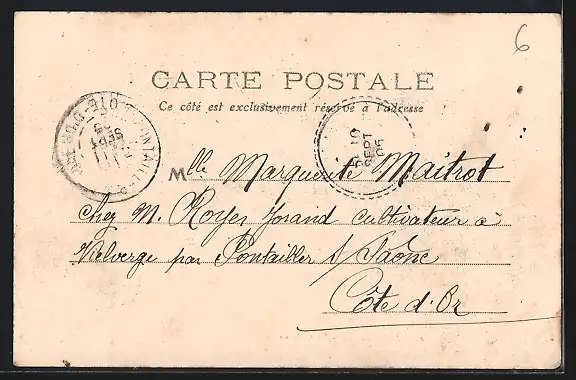 6
CARTE POSTALE
Ce côté est exclusivement réservé à l'adresse
10
SEPT
05
Mlle Marguerite Maitrot
chez M. Royer Jorand cultivateur à
Vielverge par Pontailler s/ Saône
Côte d'Or